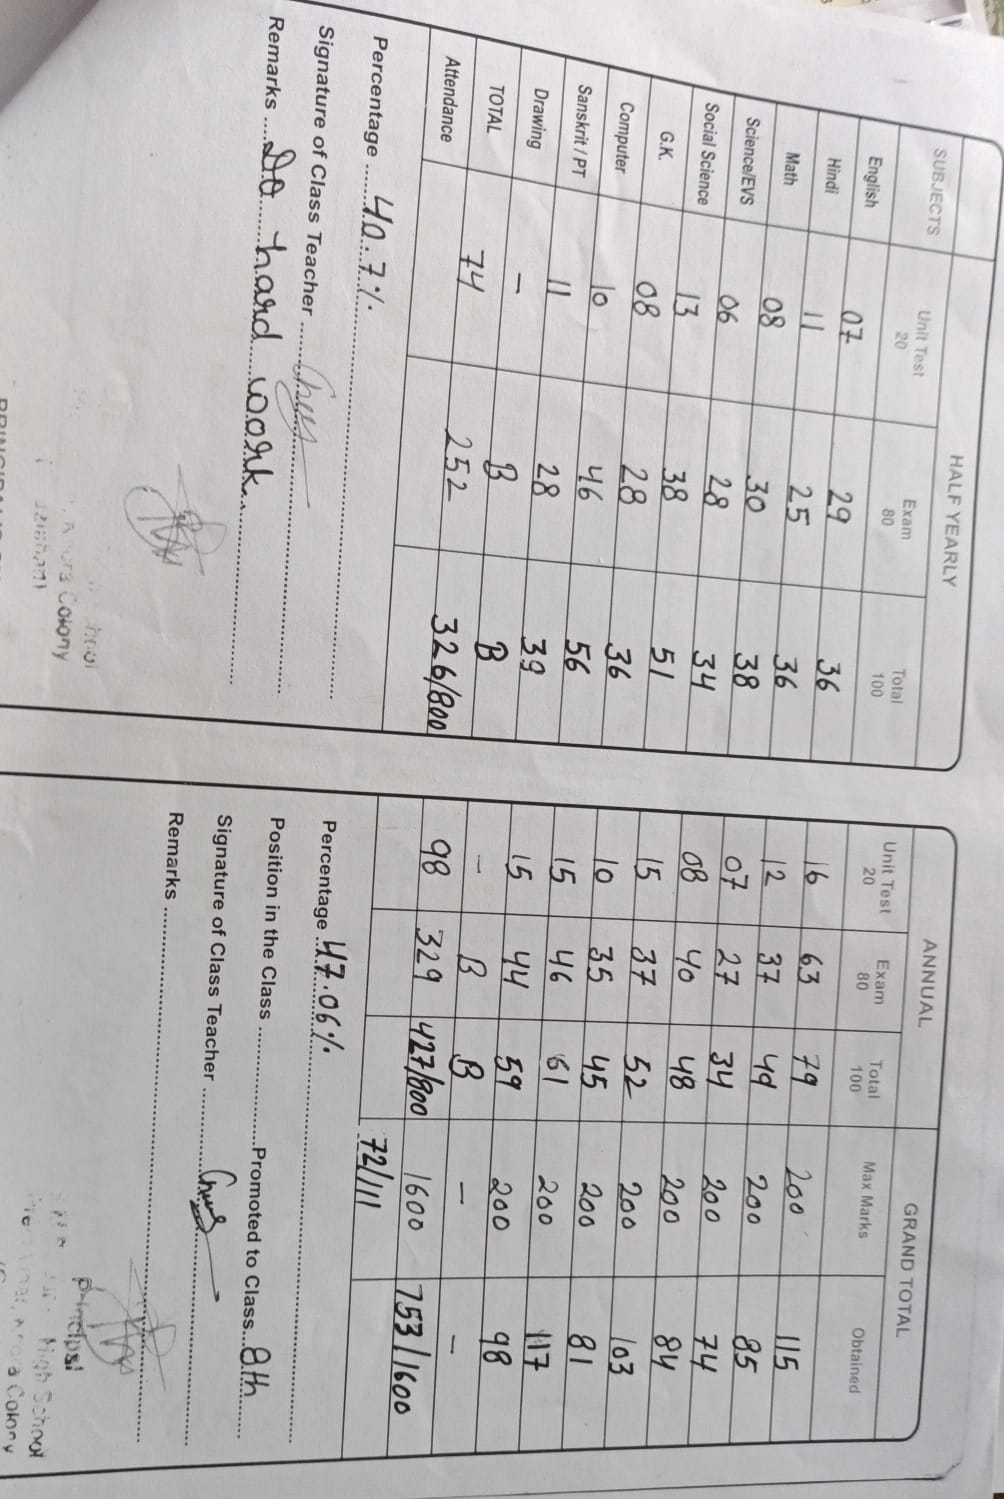 HALF YEARLY ANNUAL GRAND TOTAL
SUBJECTS Unit Test 20 Exam 80 Total 100 Unit Test 20 Exam 80 Total 100 Max Marks Obtained
English 07 29 36 16 63 79 200 115
Hindi 11 25 36 12 37 49 200 85
Math 08 30 38 07 27 34 200 74
Science/EVS 06 28 34 08 40 48 200 84
Social Science 13 38 51 15 37 52 200 103
G.K. 08 28 36 10 35 45 200 81
Computer 10 46 56 15 46 61 200 117
Sanskrit / PT 11 28 39 15 44 59 200 98
Drawing - B B - B B - -
TOTAL 74 252 326/800 98 329 427/800 1600 753/1600
Attendance 72/111
Percentage 40.7%.
Signature of Class Teacher
Remarks Do hard work.
Colony
Percentage 47.06%.
Position in the Class Promoted to Class 8th
Signature of Class Teacher
Remarks
Principal
High School
Colony